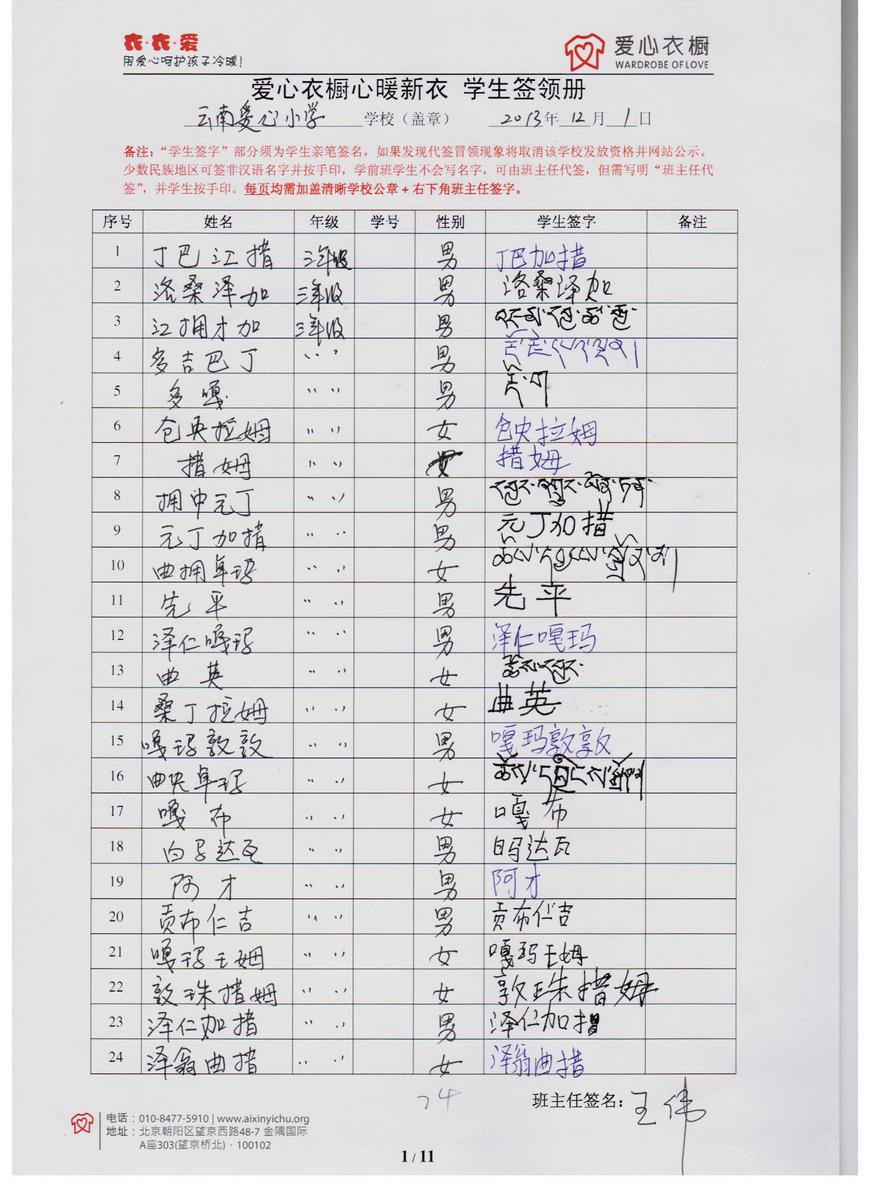 衣·衣·爱
用爱心呵护孩子冷暖!
爱心衣橱
WARDROBE OF LOVE
爱心衣橱心暖新衣 学生签领册
云南爱心小学 学校（盖章） 2013年12月1日
备注：“学生签字”部分须为学生亲笔签名，如果发现代签冒领现象将取消该学校发放资格并网站公示。
少数民族地区可签非汉语名字并按手印，学前班学生不会写名字，可由班主任代签，但需写明“班主任代
签”，并学生按手印。每页均需加盖清晰学校公章+右下角班主任签字。
序号 姓名 年级 学号 性别 学生签字 备注
1 丁巴江措 三年级 男 丁巴加措
2 洛桑泽加 三年级 男 洛桑泽加
3 江拥才加 三年级 男
4 多吉巴丁 〃 〃 男
5 多嘎 〃 〃 男
6 仓央拉姆 〃 〃 女 仓央拉姆
7 措姆 〃 〃 女 措姆
8 拥中元丁 〃 〃 男
9 元丁加措 〃 〃 男 元丁加措
10 曲拥卓玛 〃 〃 女
11 先平 〃 〃 男 先平
12 泽仁嘎玛 〃 〃 男 泽仁嘎玛
13 曲英 〃 〃 女
14 桑丁拉姆 〃 〃 女 曲英
15 嘎玛敦敦 〃 〃 男 嘎玛敦敦
16 曲央卓玛 〃 〃 女
17 嘎布 〃 〃 女 嘎布
18 白马达瓦 〃 〃 男 白玛达瓦
19 阿才 〃 〃 男 阿才
20 贡布仁吉 〃 〃 男 贡布仁吉
21 嘎玛王姆 〃 〃 女 嘎玛王姆
22 敦珠措姆 〃 〃 女 敦珠措姆
23 泽仁加措 〃 〃 男 泽仁加措
24 泽翁曲措 〃 〃 女 泽翁曲措
24
班主任签名：王伟
电话：010-8477-5910 | www.aixinyichu.org
地址：北京朝阳区望京西路48-7 金隅国际
A座303(望京桥北)·100102
1 / 11